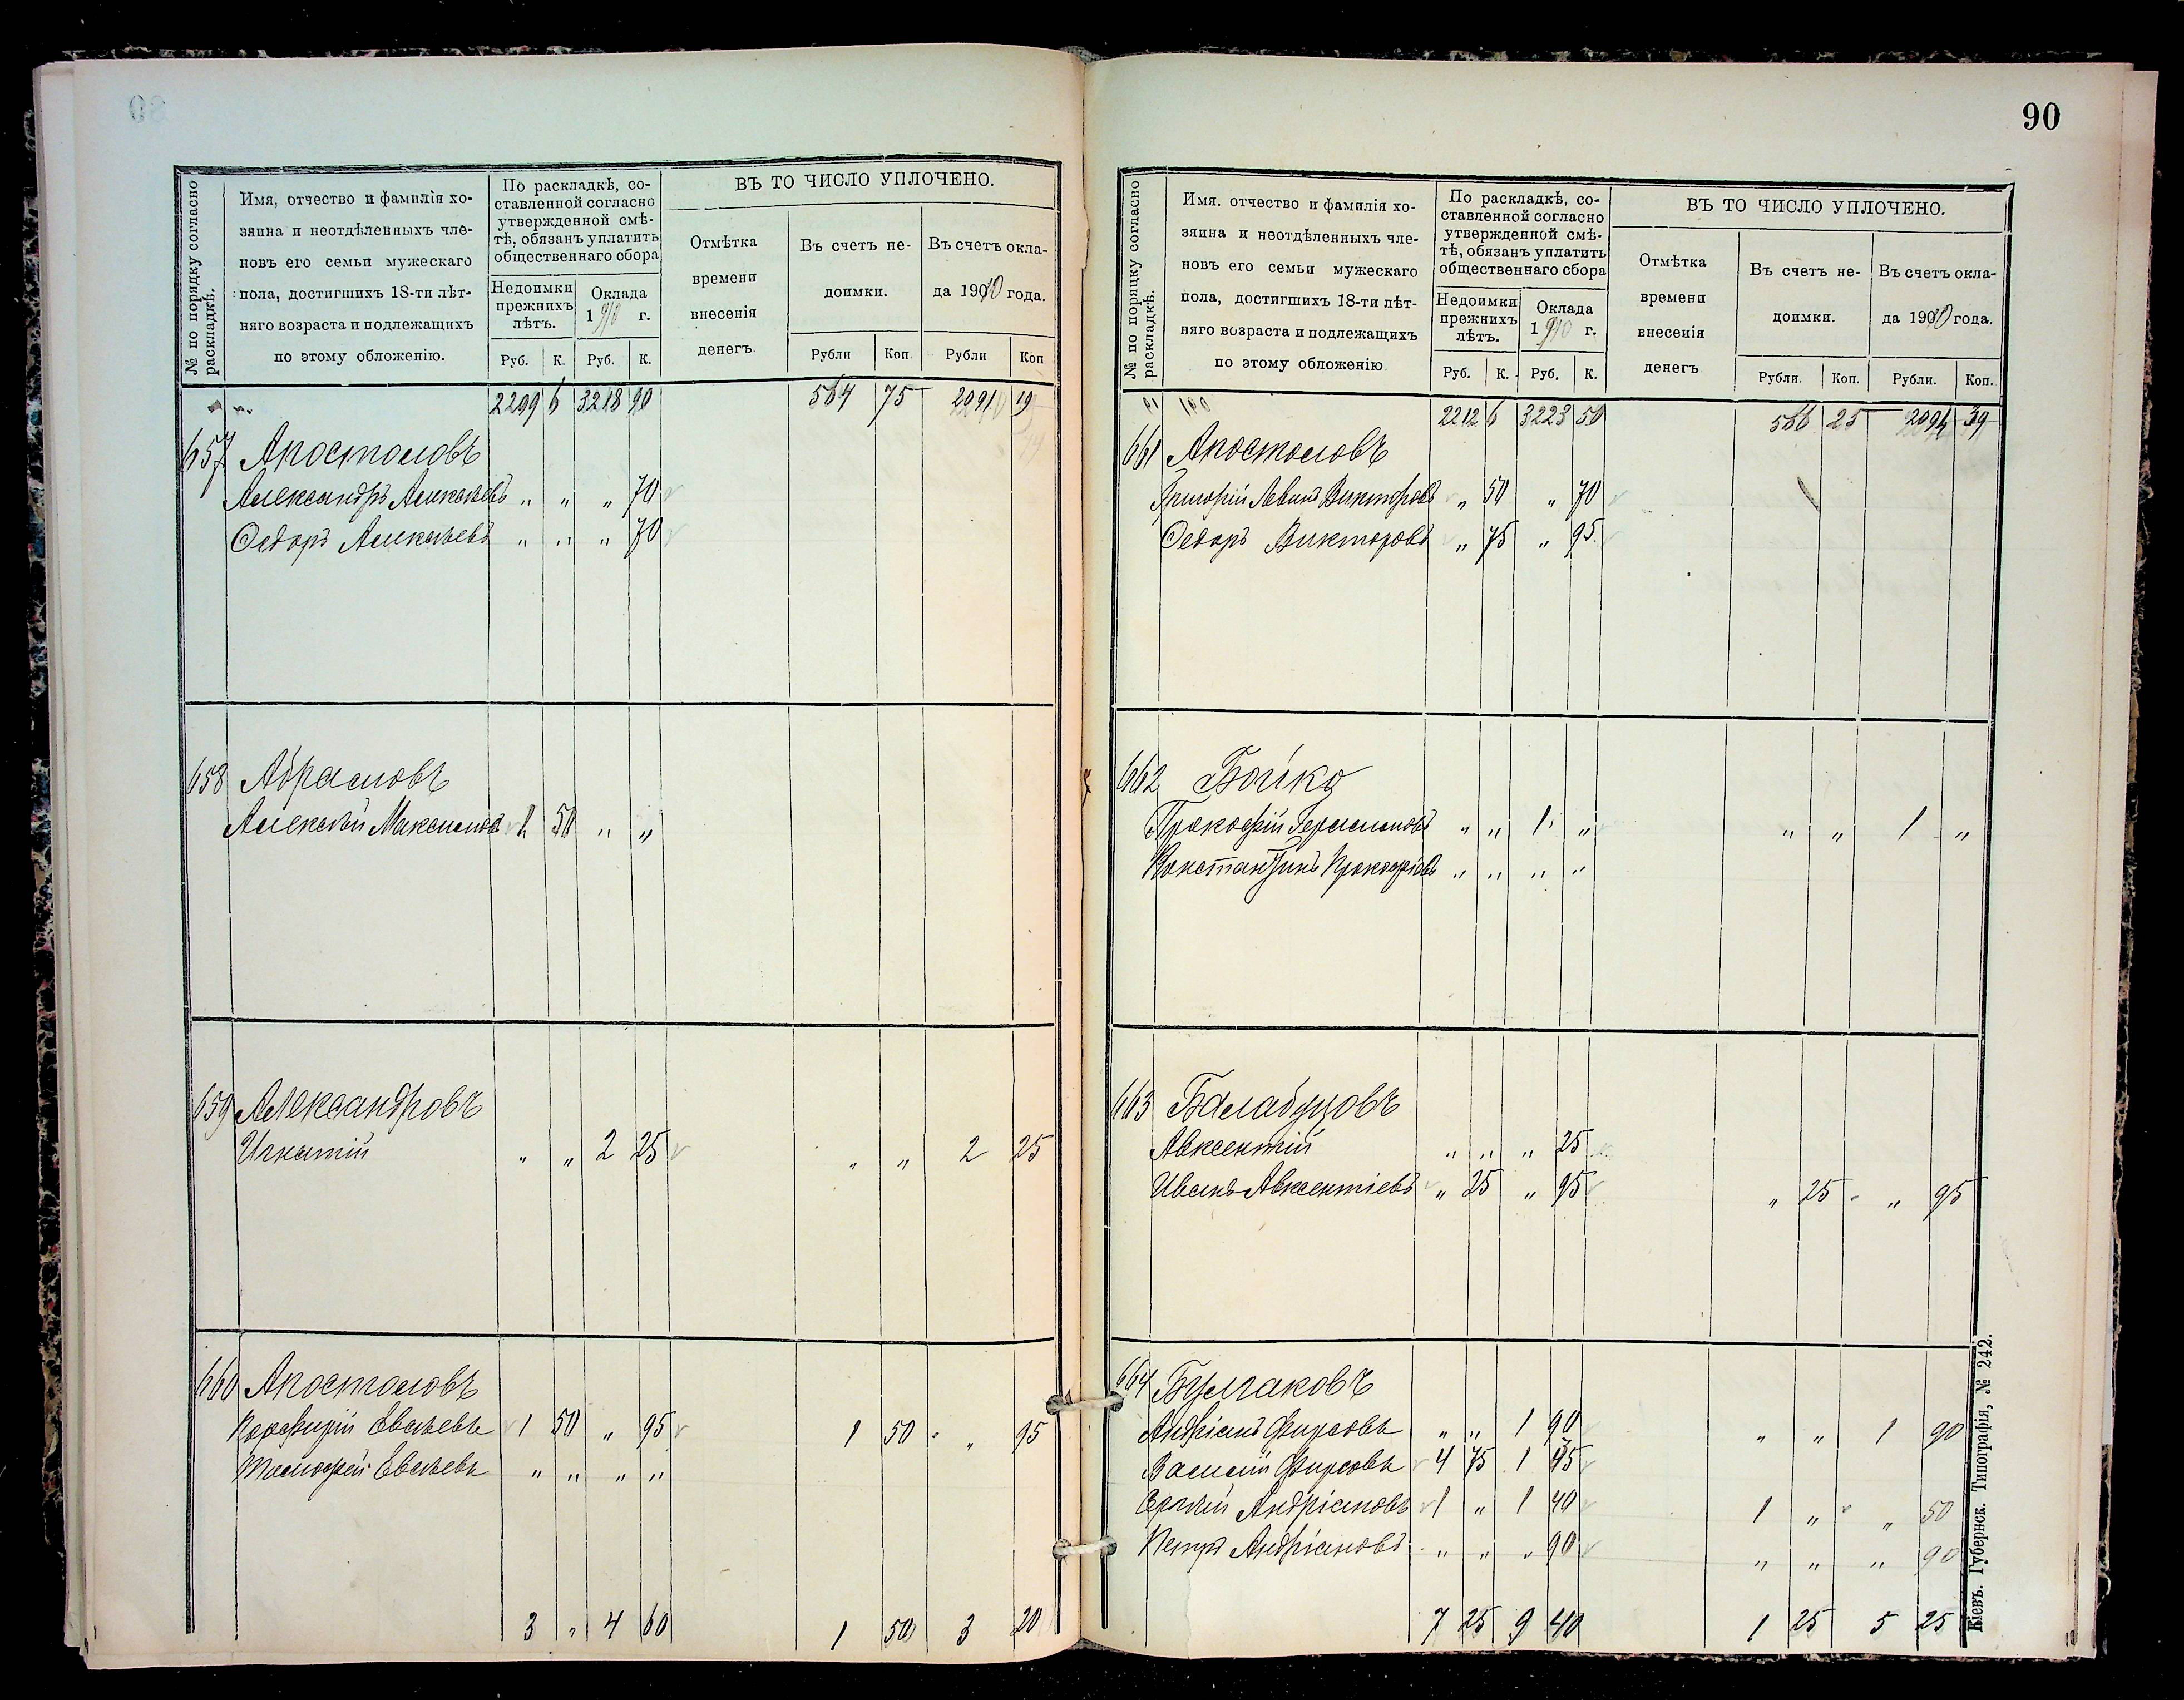 90
№ по порядку согласно раскладкѣ.
Имя, отчество и фамилія хо-
зяина и неотдѣленныхъ чле-
новъ его семьи мужескаго
пола, достигшихъ 18-ти лѣт-
няго возраста и подлежащихъ
по этому обложенію.
По раскладкѣ, со-
ставленной согласно
утвержденной смѣ-
тѣ, обязанъ уплатить
общественнаго сбора
Недоимки
прежнихъ
лѣтъ.
Оклада
1910 г.
Руб. К. Руб. К.
ВЪ ТО ЧИСЛО УПЛОЧЕНО.
Отмѣтка
времени
внесенія
денегъ.
Въ счетъ не-
доимки.
Въ счетъ окла-
да 1910 года.
Рубли Коп. Рубли Коп
2209 6 3218 90 564 75 2091 19
657 Апостоловъ
Александръ Алексѣевъ „ „ „ 70
Ѳедоръ Алексѣевъ „ „ „ 70
658 Абрамовъ
Алексѣй Максимовъ 1 50 „ „
659 Александровъ
Игнатій „ „ 2 25 „ „ 2 25
660 Апостоловъ
Порфирій Евсѣевъ 1 50 „ 95 1 50 „ 95
Тимофей Евсѣевъ „ „ „ „
3 „ 4 60 1 50 3 20
№ по порядку согласно раскладкѣ.
Имя. отчество и фамилія хо-
зяина и неотдѣленныхъ чле-
новъ его семьи мужескаго
пола, достигшихъ 18-ти лѣт-
няго возраста и подлежащихъ
по этому обложенію
По раскладкѣ, со-
ставленной согласно
утвержденной смѣ-
тѣ, обязанъ уплатить
общественнаго сбора
Недоимки
прежнихъ
лѣтъ.
Оклада
1910 г.
Руб. К. Руб. К.
ВЪ ТО ЧИСЛО УПЛОЧЕНО.
Отмѣтка
времени
внесенія
денегъ
Въ счетъ не-
доимки.
Въ счетъ окла-
да 1910 года.
Рубли. Коп. Рубли. Коп.
2212 6 3223 50 566 25 2094 39
661 Апостоловъ
Григорій Левинъ Викторовъ „ 50 „ 70
Ѳедоръ Викторовъ „ 75 „ 95
662 Бойко
Прокофій Герасимовъ „ „ 1 „ „ „ 1 „
Константинъ Прокофіевъ „ „ „ „
663 Балабуцовъ
Авксентій „ „ „ 25
Иванъ Авксентіевъ „ 25 „ 95 „ 25 „ 95
664 Булгаковъ
Андріанъ Фирсовъ „ „ 1 90 „ „ 1 90
Василій Фирсовъ 4 75 1 45
Сергѣй Андріановъ 1 „ 1 40 1 „ „ 50
Петръ Андріановъ „ „ „ 90 „ „ „ 90
7 25 9 40 1 25 5 25
Кіевъ. Губернск. Типографія, № 242.